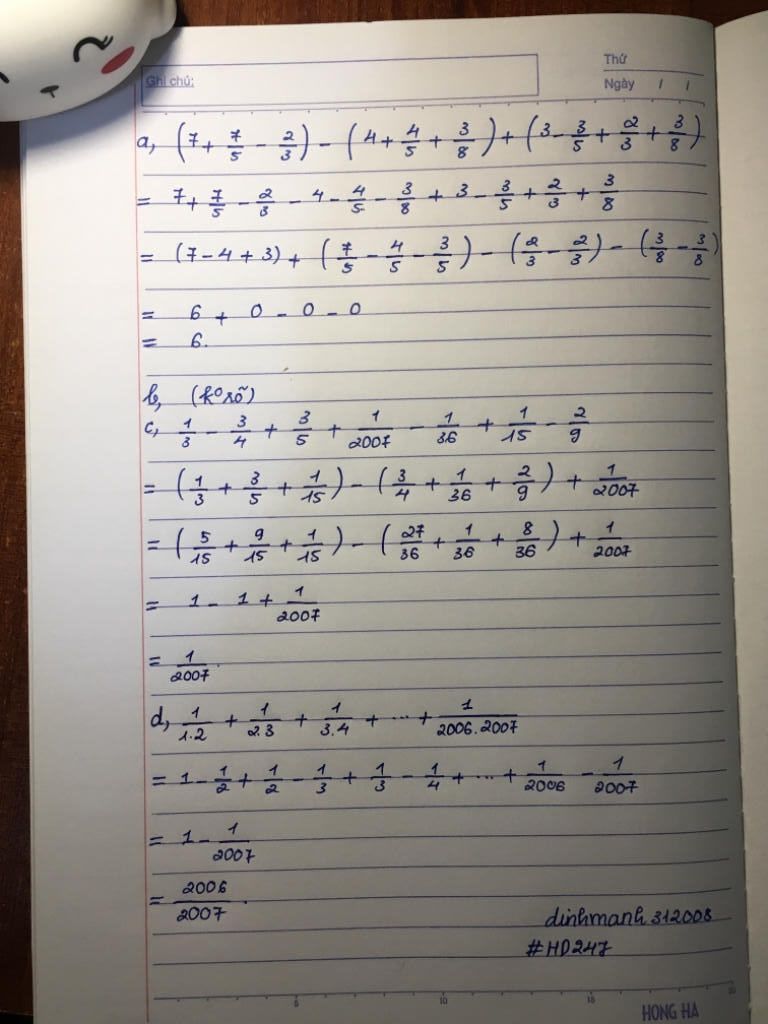 Ghi chú:
Thứ
Ngày / /
a, (7 + 7/5 - 2/3) - (4 + 4/5 + 3/8) + (3 - 3/5 + 2/3 + 3/8)
= 7 + 7/5 - 2/3 - 4 - 4/5 - 3/8 + 3 - 3/5 + 2/3 + 3/8
= (7 - 4 + 3) + (7/5 - 4/5 - 3/5) - (2/3 - 2/3) - (3/8 - 3/8)
= 6 + 0 - 0 - 0
= 6.
b, (k° rõ)
c, 1/3 - 3/4 + 3/5 + 1/2007 - 1/36 + 1/15 - 2/9
= (1/3 + 3/5 + 1/15) - (3/4 + 1/36 + 2/9) + 1/2007
= (5/15 + 9/15 + 1/15) - (27/36 + 1/36 + 8/36) + 1/2007
= 1 - 1 + 1/2007
= 1/2007.
d, 1/1.2 + 1/2.3 + 1/3.4 + ... + 1/2006.2007
= 1 - 1/2 + 1/2 - 1/3 + 1/3 - 1/4 + ... + 1/2006 - 1/2007
= 1 - 1/2007
= 2006/2007.
dinhmanh312008
#HD247
5 10 15 20
HONG HA